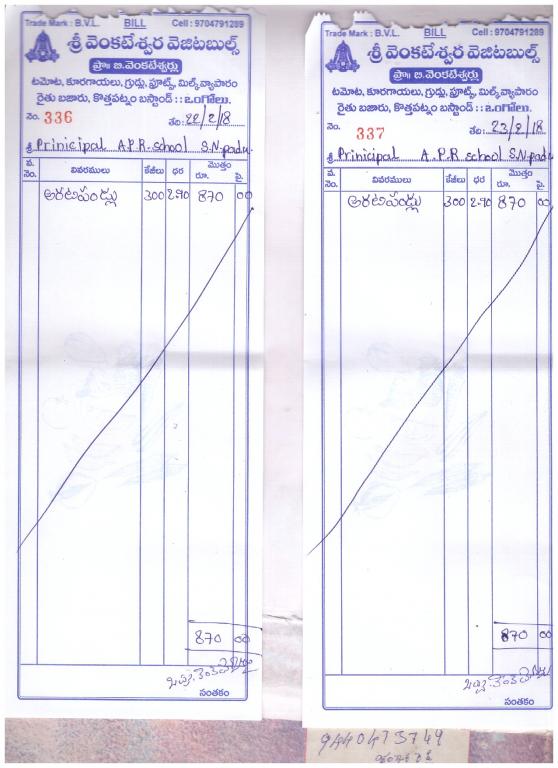 Trade Mark : B.V.L. BILL Cell : 9704791289
శ్రీ వెంకటేశ్వర వెజిటబుల్స్
ప్రొః బి.వెంకటేశ్వర్లు
టమోట, కూరగాయలు, గ్రుడ్లు, ఫ్రూట్స్, మిల్క్ వ్యాపారం
రైతు బజారు, కొత్తపట్నం బస్టాండ్ : : ఒంగోలు.
నెం. 336 తేది: 22/2/18
శ్రీ Prinicipal A.P.R-school S.N.padu.
వ. నెం. వివరములు కేజీలు ధర మొత్తం రూ. పై.
అరటిపండ్లు 300 2.90 870 00
870 00
సంతకం
Trade Mark : B.V.L. BILL Cell : 9704791289
శ్రీ వెంకటేశ్వర వెజిటబుల్స్
ప్రొః బి.వెంకటేశ్వర్లు
టమోట, కూరగాయలు, గ్రుడ్లు, ఫ్రూట్స్, మిల్క్ వ్యాపారం
రైతు బజారు, కొత్తపట్నం బస్టాండ్ : : ఒంగోలు.
నెం. 337 తేది: 23/2/18
శ్రీ Prinicipal A.P.R school S.N.padu
వ. నెం. వివరములు కేజీలు ధర మొత్తం రూ. పై.
అరటిపండ్లు 300 2.90 870 00
870 00
సంతకం
9440473749